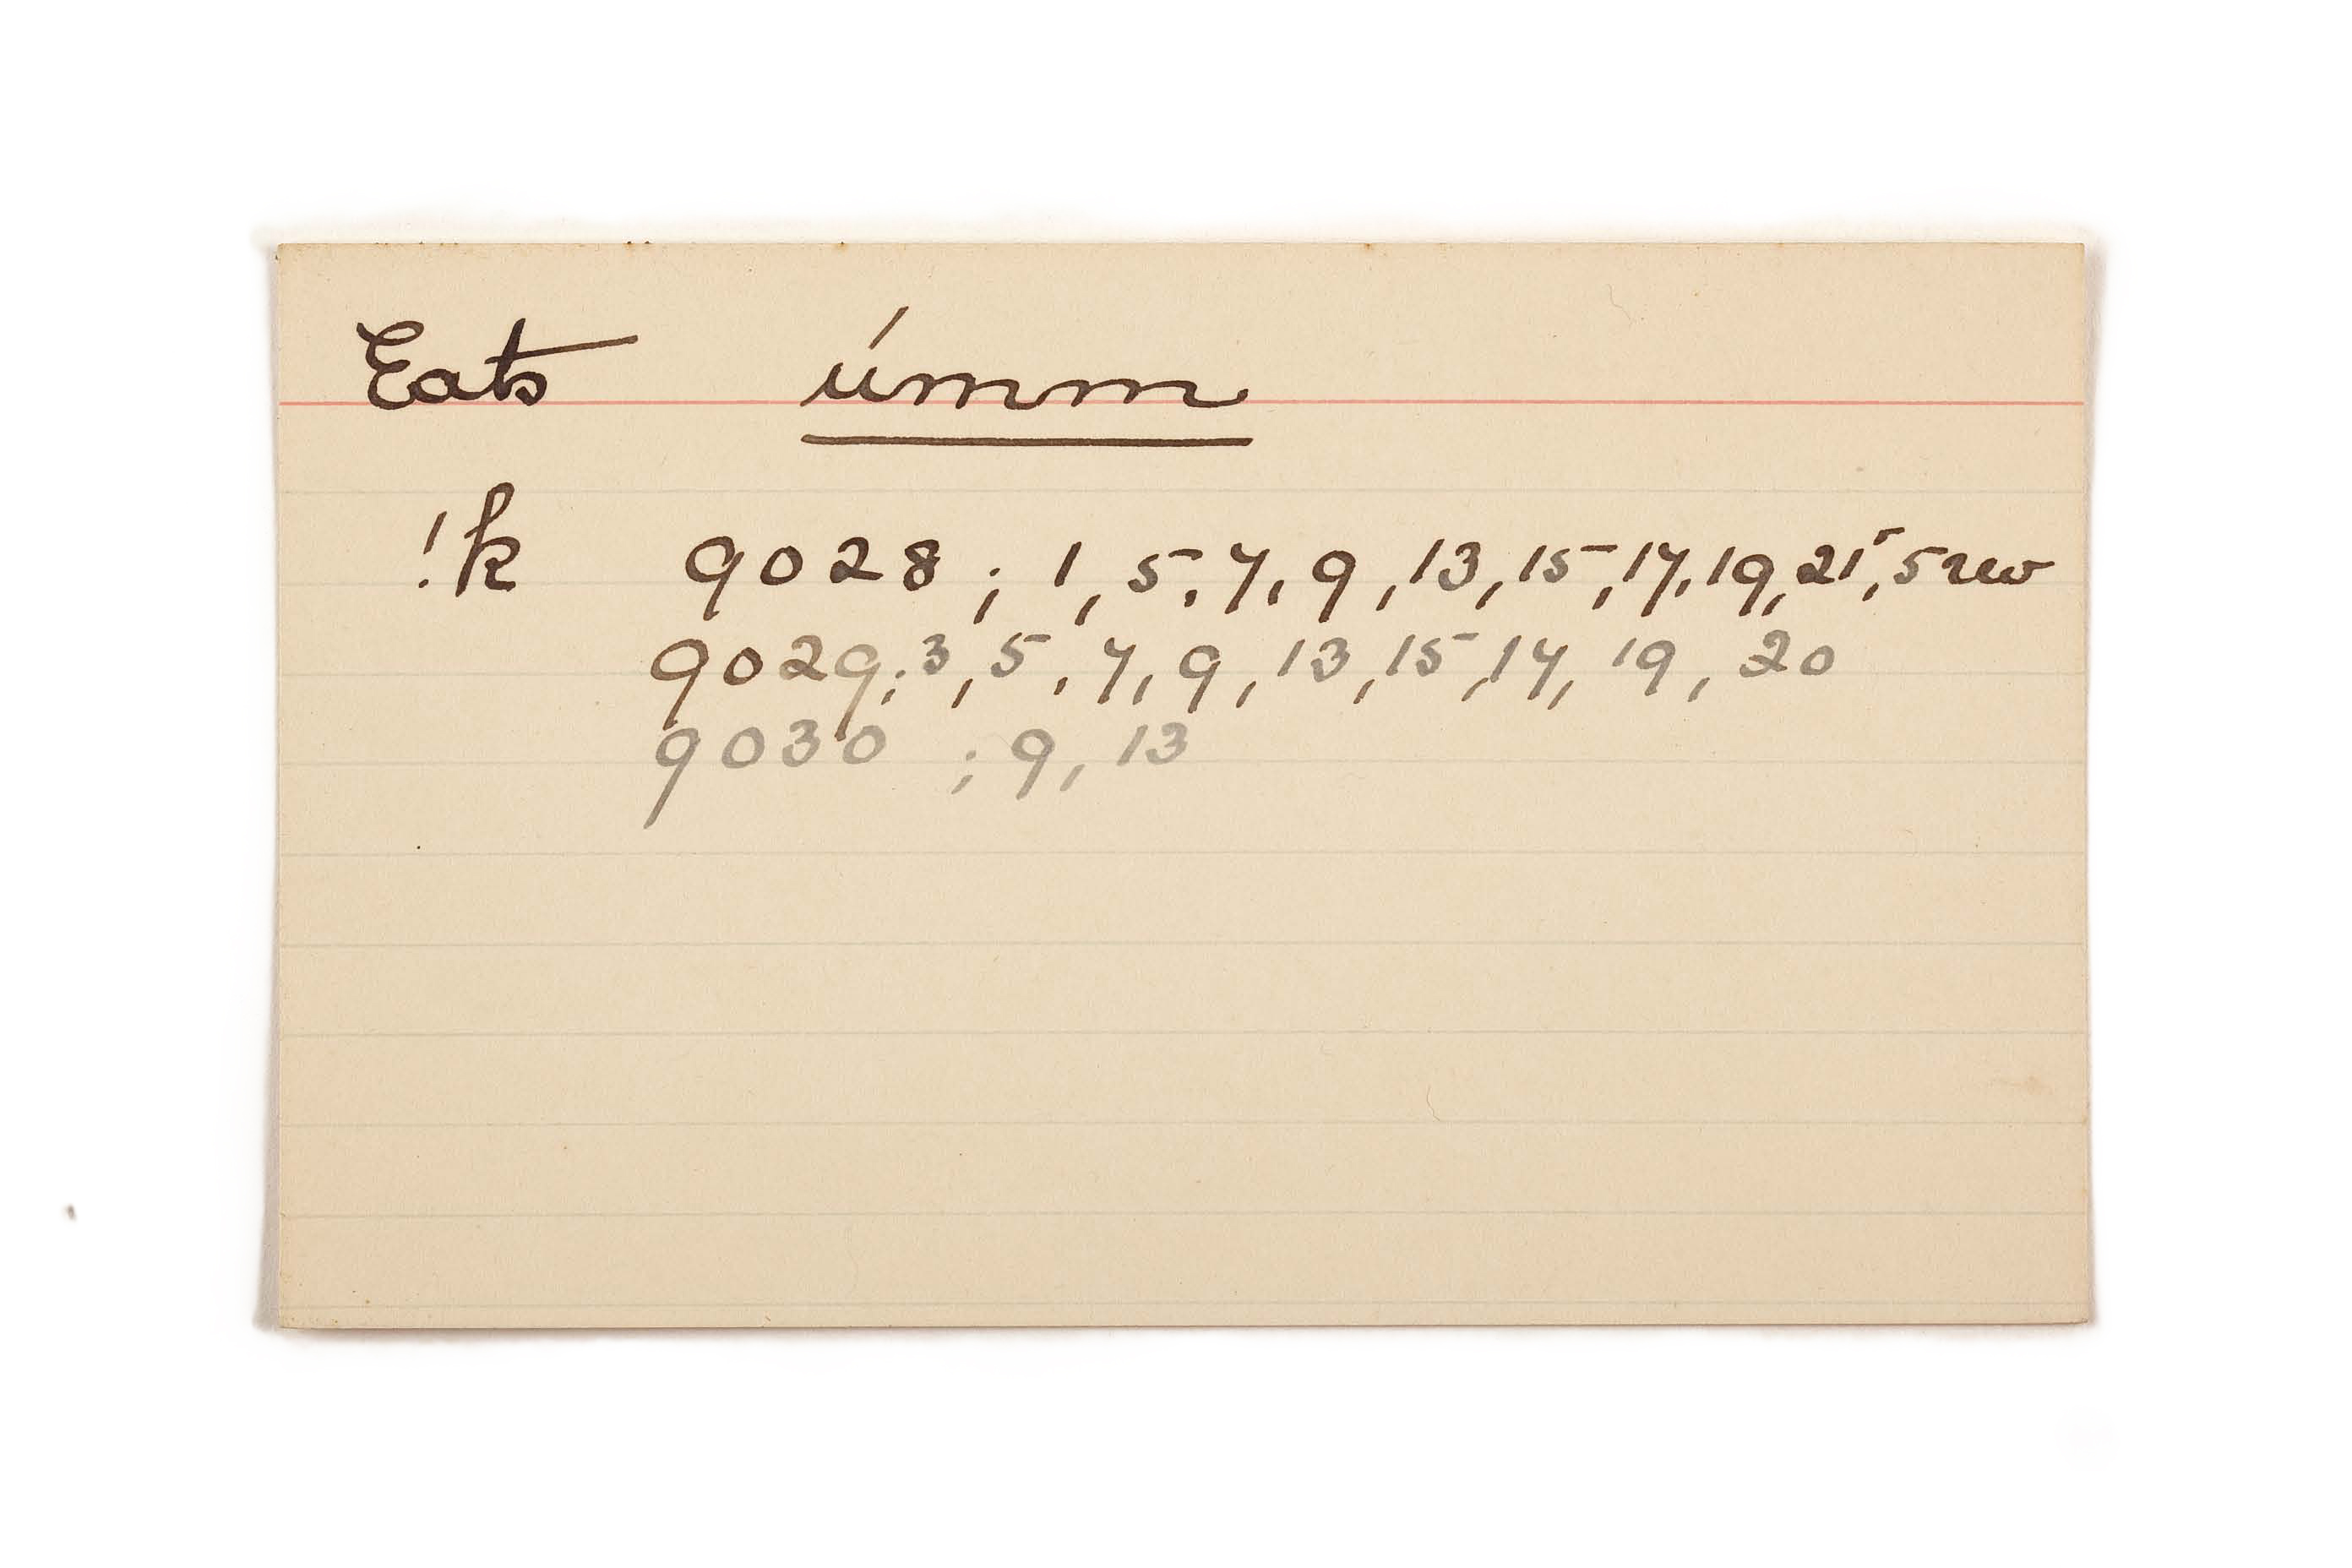 Eats úmm
!k 9028; 1, 5, 7, 9, 13, 15, 17, 19, 21, 5 rev
9029; 3, 5, 7, 9, 13, 15, 17, 19, 20
9030 ; 9, 13